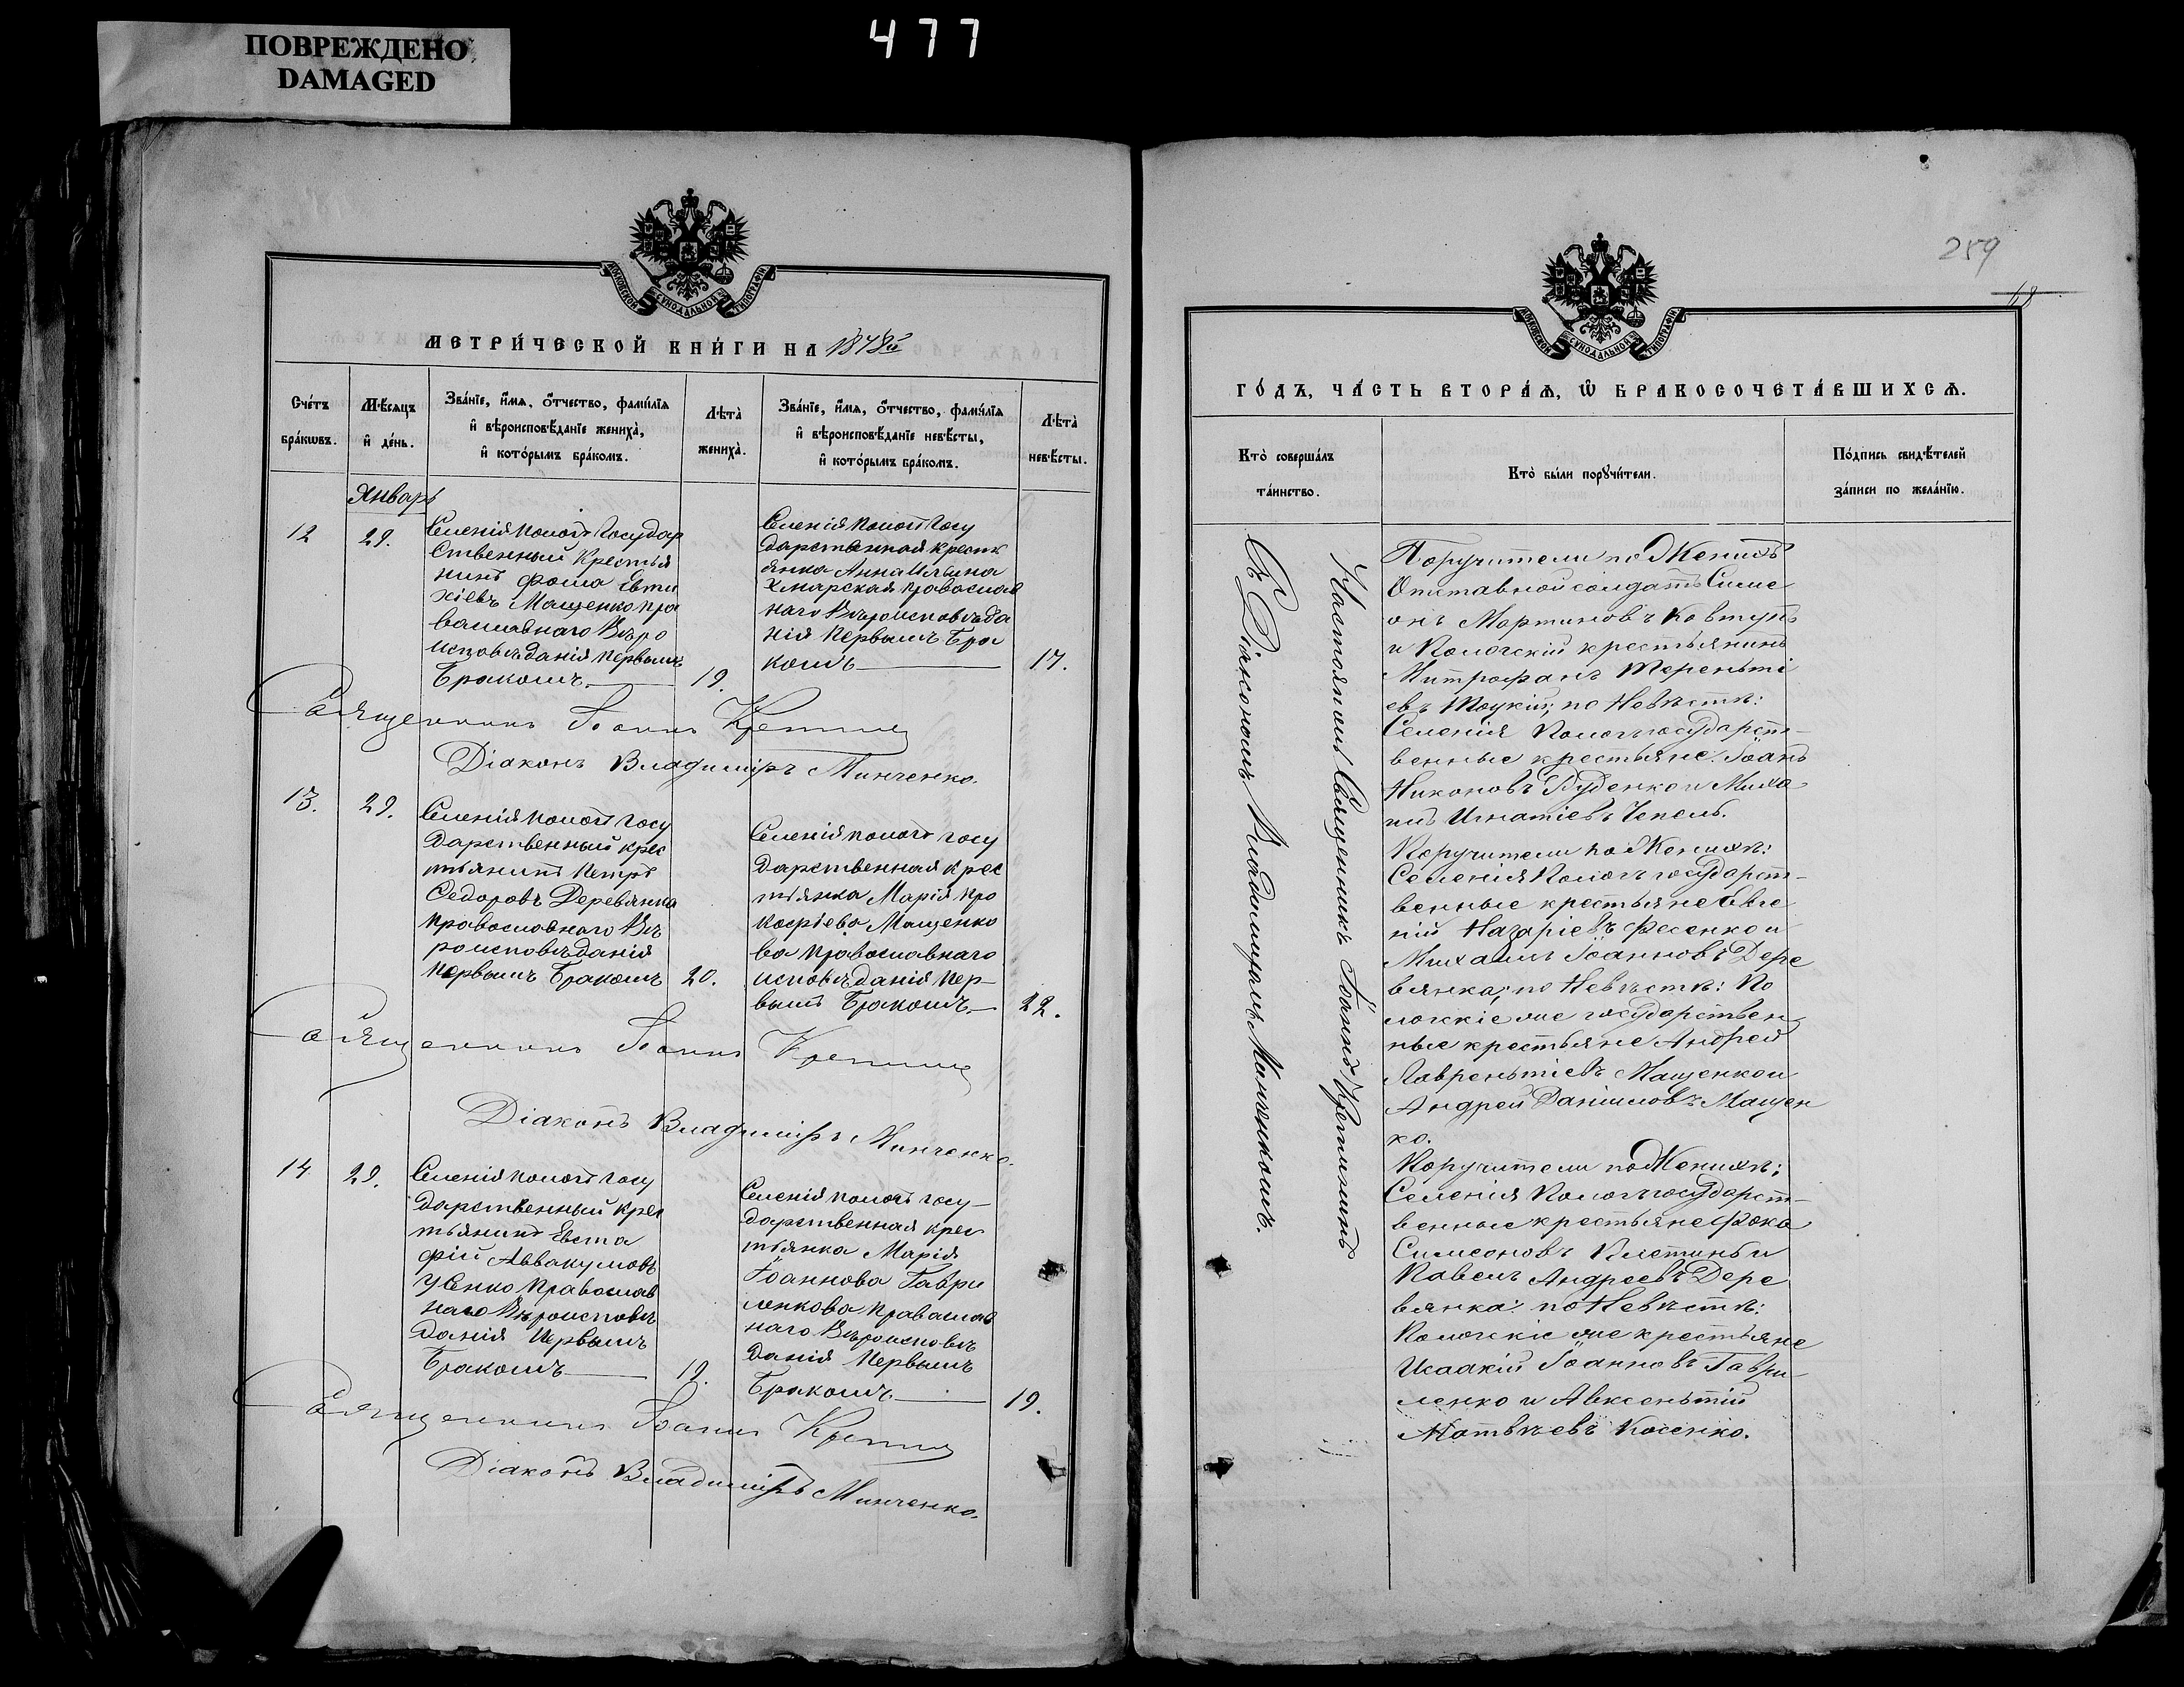 ПОВРЕЖДЕНО
DAMAGED
477
МОСКОВСКОЙ СѴНОДАЛЬНОЙ ТИПОГРАФІИ
МЕТРИ́ЧЕСКОЙ КНИ́ГИ НА 1848й
Сче́тъ
бра́кѡвъ.
Мѣ́сяцъ
и҆ де́нь.
Зва́нїе, и҆́мя, ѻ҆́тчество, фами́лїя
и҆ вѣроисповѣ́данїе жениха̀,
и҆ кото́рымъ бра́комъ.
Лѣта̀
жениха̀.
Зва́нїе, и҆́мя, ѻ҆́тчество, фами́лїя
и҆ вѣроисповѣ́данїе невѣ́сты,
и҆ кото́рымъ бра́комъ.
Лѣта̀
невѣ́сты.
Январь
12
29.
Селенія Пологъ Государ
ственный Крестья
нинъ Фома Евти
хіевъ Мащенко пра
вославнаго Вѣро
исповѣданія первымъ
Бракомъ.
19.
Селенія Пологъ Госу
дарственная крестья
янка Анна Ильина
Хмарская православ
наго Вѣроисповѣда
нія первымъ Бра
комъ
17.
Священникъ Іоаннъ
Діаконъ Владимиръ Минченко.
13.
29.
Селенія Пологъ госу
дарственный крес
тьянинъ Петръ
Федоровъ Деревянка
Православнаго Вѣ
роисповѣданія
первымъ Бракомъ
20.
Селенія Пологъ госу
дарственная крес
тьянка Марія Про
кофіева Мащенко
ва православнаго
исповѣданія пер-
вымъ Бракомъ.
22.
Священникъ Іоаннъ
Діаконъ Владимиръ Минченко.
14
29.
Селенія Пологъ госу
дарственный крес
тьянинъ Евста
фій Аввакумовъ
Усенко Православ
наго Вѣроисповѣ
данія Первымъ
Бракомъ
19.
Селенія Пологъ госу-
дарственная крес
тьянка Марія
Іоаннова Гаври
ленкова Православ
наго Вѣроисповѣ
данія Первымъ
Бракомъ.
19.
Священникъ Іоаннъ
Діаконъ Владимиръ Минченко.
259
68
МОСКОВСКОЙ СѴНОДАЛЬНОЙ ТИПОГРАФІИ
ГО́ДЪ, ЧА́СТЬ ВТОРА́Я, Ѡ҆ БРАКОСОЧЕТА́ВШИХСЯ.
Кто̀ соверша́лъ
та́инство.
Кто̀ бы́ли порꙋчи́тели.
По́дпись свидѣ́телей
за́писи по жела́нїю.
Настоятель Священникъ Іоаннъ
Съ Діакономъ Владимиромъ Минченкомъ.
Поручители по Женихѣ
Отставной солдатъ Симе
онъ Мартиновъ Ковтунъ
и Пологскій крестьянинъ
Митрофанъ Тереньті
евъ Тоцкій; по Невѣстѣ:
Селенія Пологъ государст-
венные крестьяне: Іоаннъ
Никоновъ Руденко и Миха
илъ Игнатіевъ Чепель.
Поручители по Женихѣ:
Селенія Пологъ государст-
венные крестьяне Евге
ній Назаріевъ Фесенко и
Михаилъ Іоанновъ Дере
вянка; по Невѣстѣ: По
ложкіе же государствен
ные крестьяне Андрей
Лавреньтіевъ Мащенко и
Андрей Даніиловъ Мащен
ко.
Поручители по Женихѣ;
Селенія Пологъ государст-
венные крестьяне Фока
Симеоновъ Плетинь и
Павелъ Андреевъ Дере
вянка: по Невѣстѣ:
Пологскіе же крестьяне
Исаакій Іоанновъ Гаври-
ленко и Авксеньтій
Матвѣевъ Косенко.